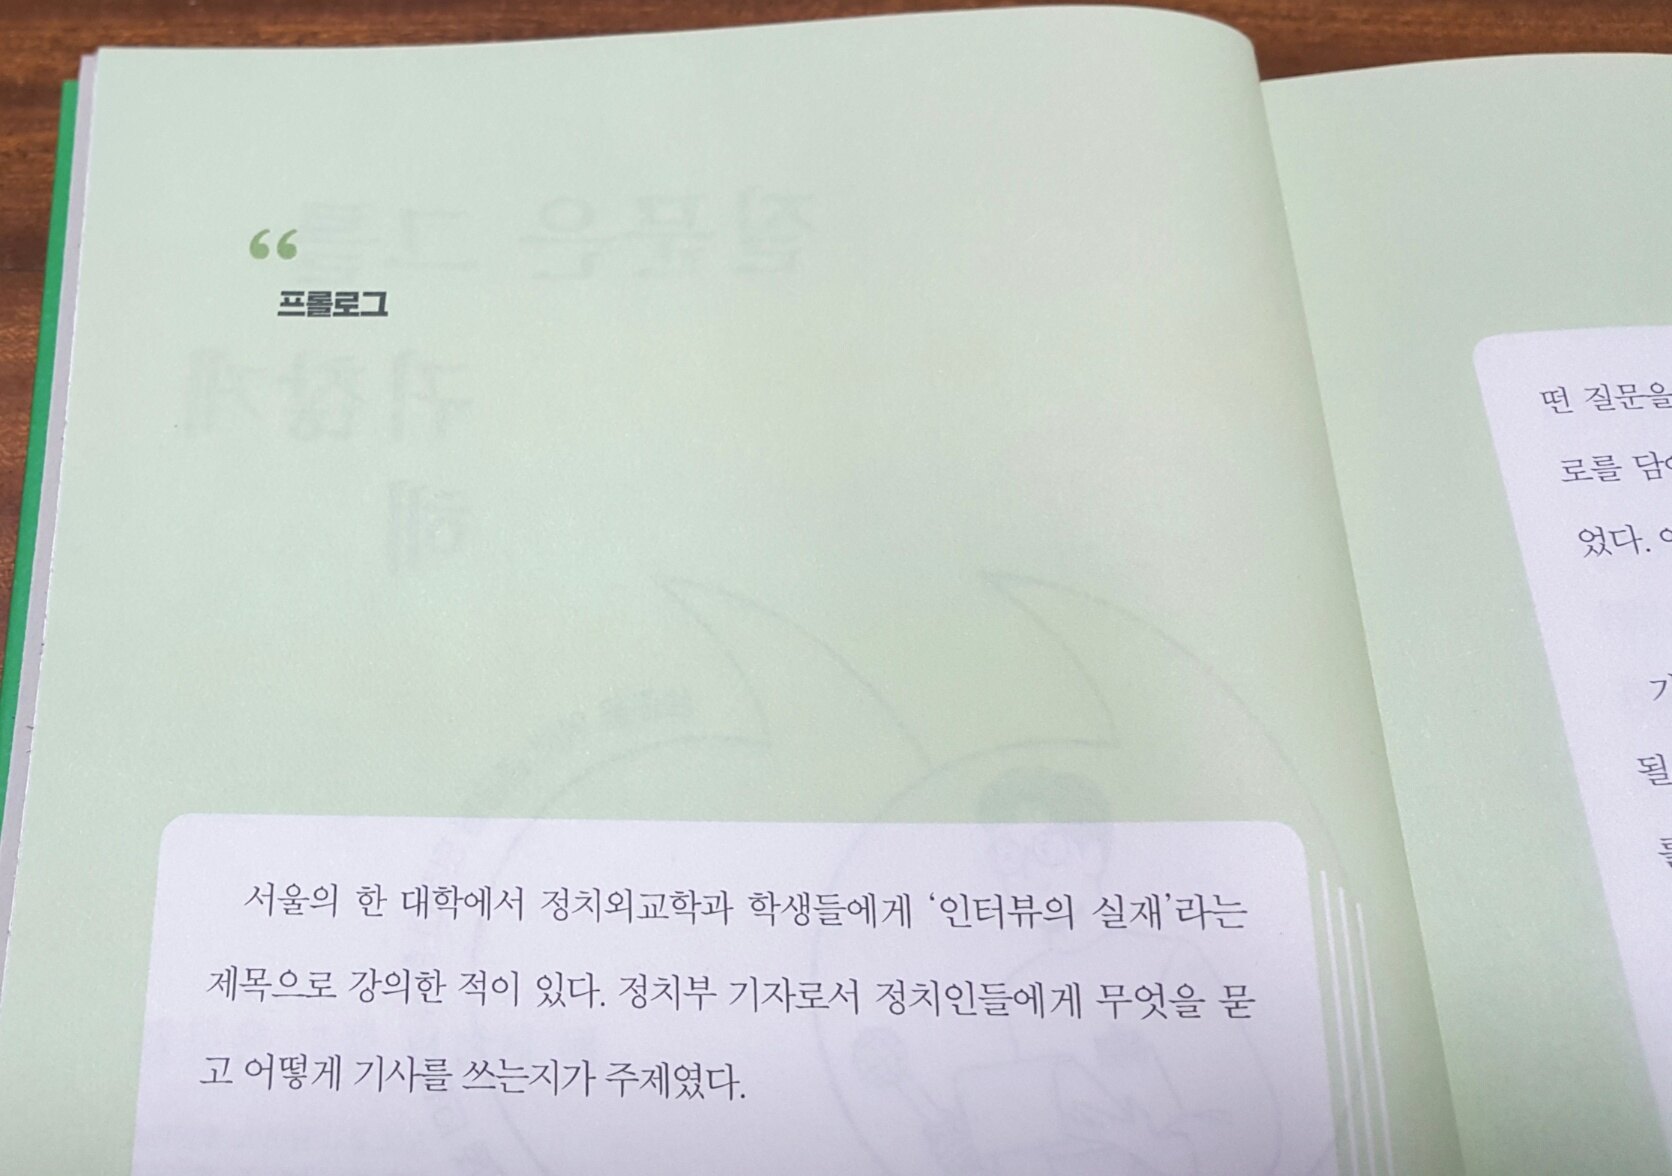 프롤로그
서울의 한 대학에서 정치외교학과 학생들에게 ‘인터뷰의 실재’라는
제목으로 강의한 적이 있다. 정치부 기자로서 정치인들에게 무엇을 묻
고 어떻게 기사를 쓰는지가 주제였다.
떤 질문을
로를
었다.
될